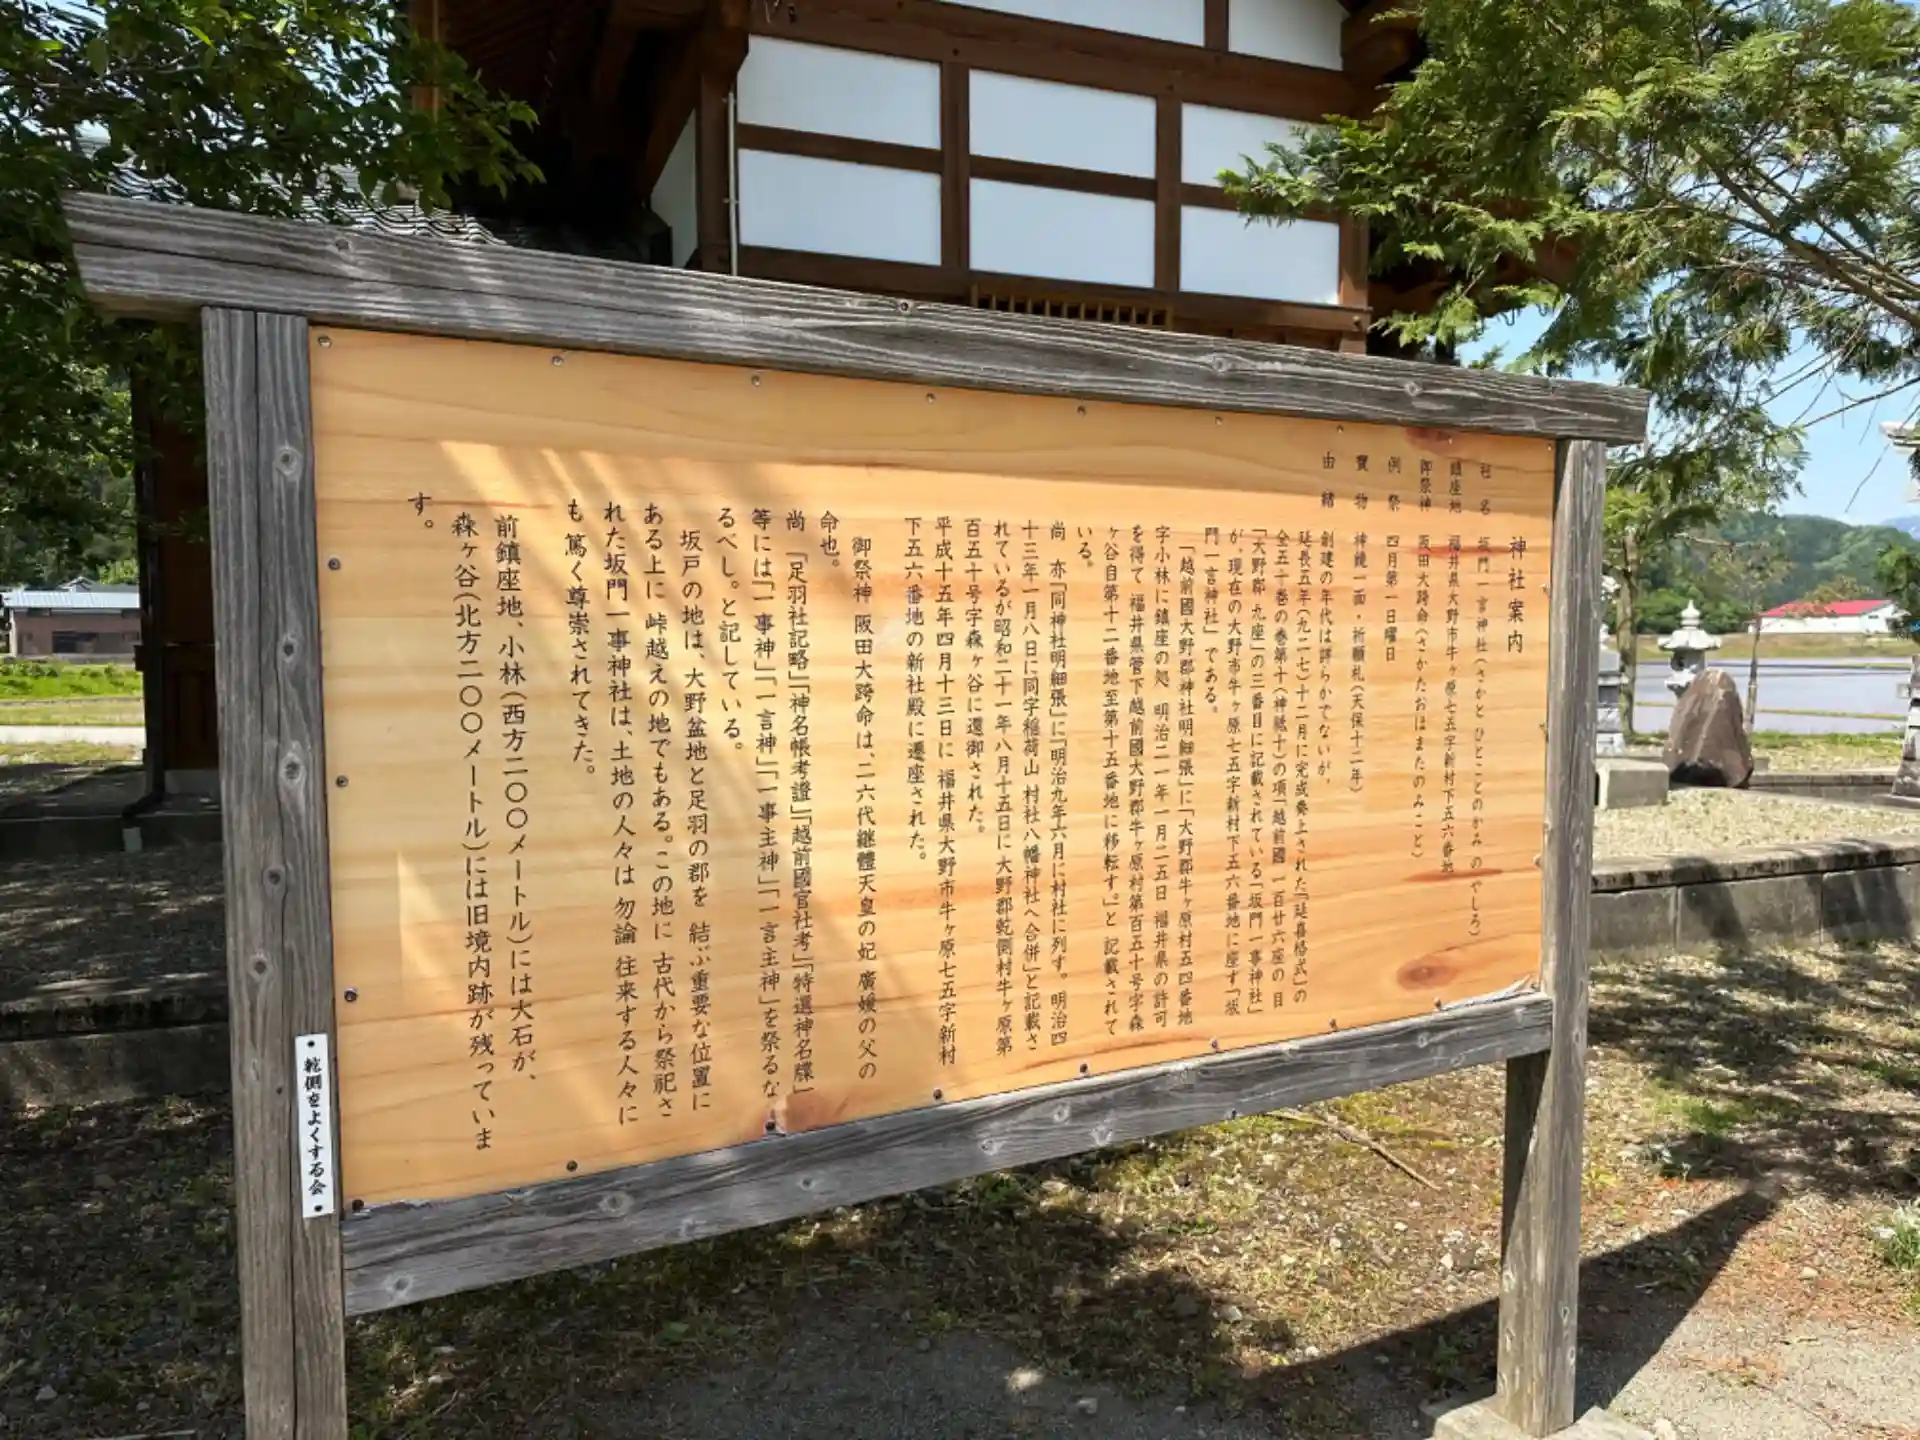 神社案内
社名 坂門一言神社(さかとひとことのかみのやしろ)
鎮座地 福井県大野市牛ヶ原七五字新村下五六番地
御祭神 阪田大跨命(さかたおほまたのみこと)
例祭 四月第一日曜日
寳物 神鏡一面・祈願札(天保十二年)
由緒 創建の年代は詳らかでないが、
延長五年(九二七)十二月に完成奏上された「延喜格式」の
全五十巻の巻第十(神祗十)の項「越前國一百廿六座の目
「大野郡 九座」の三番目に記載されている「坂門一事神社」
が、現在の大野市牛ヶ原七五字新村下五六番地に座す「坂
門一言神社」である。
「越前國大野郡神社明細張」に「大野郡牛ヶ原村五四番地
字小林に鎮座の処 明治二一年一月二五日 福井県の許可
を得て 福井県管下越前國大野郡牛ヶ原村第百五十号字森
ヶ谷自第十二番地至第十五番地に移転す。」と 記載されて
いる。
尚 亦「同神社明細張」に「明治九年六月に村社に列す。明治四
十三年一月八日に同字稲荷山 村社八幡神社へ合併」と記載さ
れているが昭和二十一年八月十五日に 大野郡乾側村牛ヶ原第
百五十号字森ヶ谷に還御された。
平成十五年四月十三日に 福井県大野市牛ヶ原七五字新村
下五六番地の新社殿に遷座された。
御祭神 阪田大跨命は、二六代継體天皇の妃 廣媛の父の
命也。
尚 「足羽社記略」「神名帳考證」「越前國官社考」「特選神名牒」
等には「一事神」「一言神」「一事主神」「一言主神」を祭るな
るべし。と記している。
坂戸の地は、大野盆地と足羽の郡を 結ぶ重要な位置に
ある上に 峠越えの地でもある。この地に 古代から祭祀さ
れた坂門一事神社は、土地の人々は 勿論 往来する人々に
も篤く尊崇されてきた。
前鎮座地、小林(西方二〇〇メートル)には大石が、
森ヶ谷(北方二〇〇メートル)には旧境内跡が残っていま
す。
乾側をよくする会